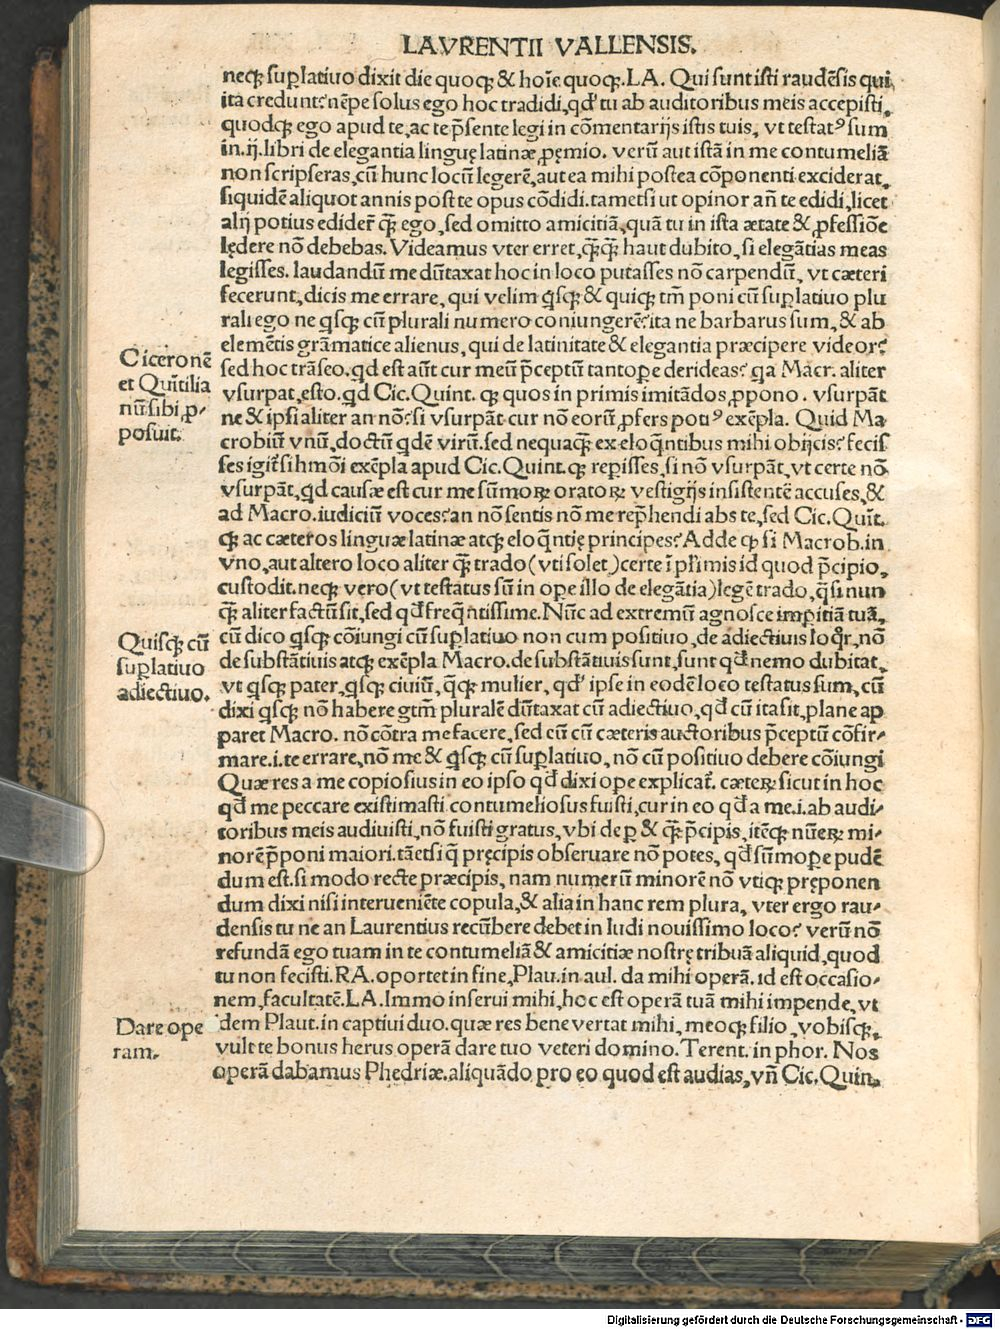 LAVRENTII VALLENSIS.
neqꝫ suꝑlatiuo dixit die quoqꝫ & hoīe quoqꝫ. LA. Qui sunt isti raudēsis qui
ita credunt? nēpe solus ego hoc tradidi, qd' tu ab auditoribus meis accepisti,
quodqꝫ ego apud te, ac te p̄sente legi in cōmentarijs istis tuis, vt testatꝰ sum
in .ij. libri de elegantia linguę latinæ, ꝓęmio. verū aut istā in me contumeliā
non scripseras, cū hunc locū legerē, aut ea mihi postea cōponenti exciderat,
siquidē aliquot annis post te opus cōdidi. tametsi ut opinor an̄ te edidi, licet
alij potius edider̄ q̄ꝫ ego, sed omitto amicitiā, quā tu in ista ætate & ꝓfessiōe
lędere nō debebas. Videamus vter erret, q̄ꝫq̄ꝫ haut dubito, si elegātias meas
legisses. laudandū me dūtaxat hoc in loco putasses nō carpendū, vt cæteri
fecerunt, dicis me errare, qui velim qsqꝫ & quiqꝫ tm̄ poni cū suꝑlatiuo plu
rali ego ne qsqꝫ cū plurali numero coniungerē? ita ne barbarus sum, & ab
elemētis grāmatice alienus, qui de latinitate & elegantia præcipere videor?
sed hoc trāseo. qd est aūt cur meū p̄ceptū tantope derideas? qa Macr. aliter
vsurpat, esto. qd Cic. Quint. qꝫ quos in primis imitādos, ꝓpono. vsurpāt
ne & ipsi aliter an nō? si vsurpāt cur nō eorū, ꝓfers potiꝰ exēpla. Quid Ma
crobiū vnū, doctū qdē virū. sed nequaq̄ꝫ ex eloq̄ntibus mihi obijcis? fecis
ses igit̄ si hmōi exēpla apud Cic. Quint. qꝫ repisses, si nō vsurpāt, vt certe nō
vsurpāt, qd causæ est cur me sūmoꝝ oratoꝝ vestigijs insistentē accuses, &
ad Macro. iudiciū voces? an nō sentis nō me rep̄hendi abs te, sed Cic. Quīt.
qꝫ ac cæteros linguæ latinæ atqꝫ eloq̄ntię principes? Adde ꝙ si Macrob. in
vno, aut altero loco aliter q̄ꝫ trado (vti solet) certe ī p̄imis id quod p̄cipio,
custodit. neqꝫ vero (vt testatus sū in ope illo de elegātia) legē trado, q̄si nun
q̄ꝫ aliter factū sit, sed qd freq̄ntissime. Nūc ad extremū agnosce impitiā tuā,
cū dico qsqꝫ cōiungi cū suꝑlatiuo non cum positiuo, de adiectiuis loq̄r, nō
de substātiuis atqꝫ exēpla Macro. de substātiuis sunt, sunt qd nemo dubitat,
vt qsqꝫ pater, qsqꝫ ciuiū, q̄qꝫ mulier, qd' ipse in eodē loco testatus sum, cū
dixi qsqꝫ nō habere gtm̄ pluralē dūtaxat cū adiectiuo, qd cū ita sit, plane ap
paret Macro. nō cōtra me facere, sed cū cū cæteris auctoribus p̄ceptū cōfir⸗
mare. i. te errare, nō me & qsqꝫ cū suꝑlatiuo, nō cū positiuo debere cōiungi
Quæ res a me copiosius in eo ipso qd dixi ope explicat̄. cæteꝝ sicut in hoc
qd me peccare existimasti contumeliosus fuisti, cur in eo qd a me .i. ab audi⸗
toribus meis audiuisti, nō fuisti gratus, vbi de ꝑ & q̄ꝫ p̄cipis, itēqꝫ nūeꝝ mi⸗
norē p̄poni maiori. tāetsi q̄ pręcipis obseruare nō potes, qd sūmope pudē
dum est. si modo recte præcipis, nam numerū minorē nō vtiqꝫ pręponen
dum dixi nisi interueniēte copula, & alia in hanc rem plura, vter ergo rau⸗
densis tu ne an Laurentius recūbere debet in ludi nouissimo loco? verū nō
refundā ego tuam in te contumeliā & amicitiæ nostrę tribuā aliquid, quod
tu non fecisti. RA. oportet in fine, Plau. in aul. da mihi operā. id est occasio⸗
nem, facultatē. LA. Immo inserui mihi, hoc est operā tuā mihi impende, vt
idem Plaut. in captiui duo. quæ res bene vertat mihi, meoqꝫ filio, vobisqꝫ,
vult te bonus herus operā dare tuo veteri domino. Terent. in phor. Nos
operā dabamus Phedriæ. aliquādo pro eo quod est audias, vn̄ Cic. Quin.
Cicero nē
et Quītilia
nū sibi, ꝓ⸗
posuit.
Quisqꝫ cū
suꝑlatiuo
adiectiuo.
Dare ope
ram.
Digitalisierung gefördert durch die Deutsche Forschungsgemeinschaft - DFG